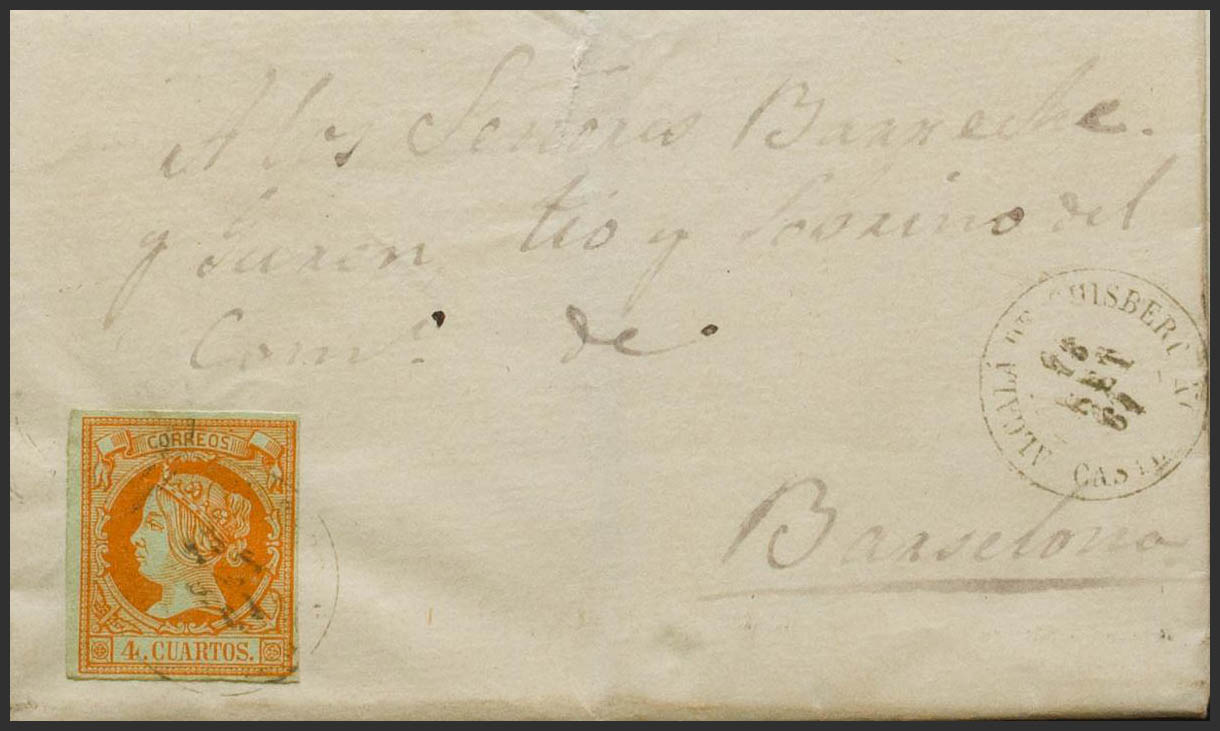 A los Señores Barreche
y Juren, tio y Sobrino del
Comº de
Barselona
ALCALÁ DE CHISBERT
CAST
CORREOS
4. CUARTOS.